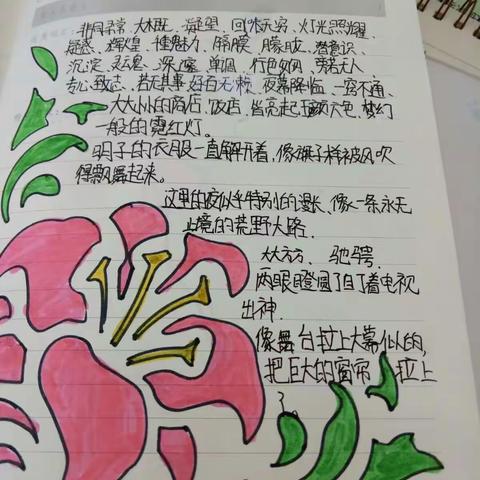 非同寻常、大概、凝望、回味无穷、灯光照耀、
疑惑、辉煌、魅力、隔膜、朦胧、潜意识、
沉淀、灵魂、深邃、单调、行色匆匆、旁若无人
专心致志、若无其事、好白无赖、夜幕降临、一窍不通、
大大小小的商店、饭店、皆亮起五颜六色、梦幻
一般的霓红灯。
明子的衣服一直解开着,像旗子样被风吹
得飘舞起来。
这里的夜似乎特别的漫长、像一条永无
止境的荒野大路.
大大方方、驰骋
两眼瞪圆了盯着电视
出神.
像舞台拉上大幕似的,
把巨大的窗帘拉上
了。